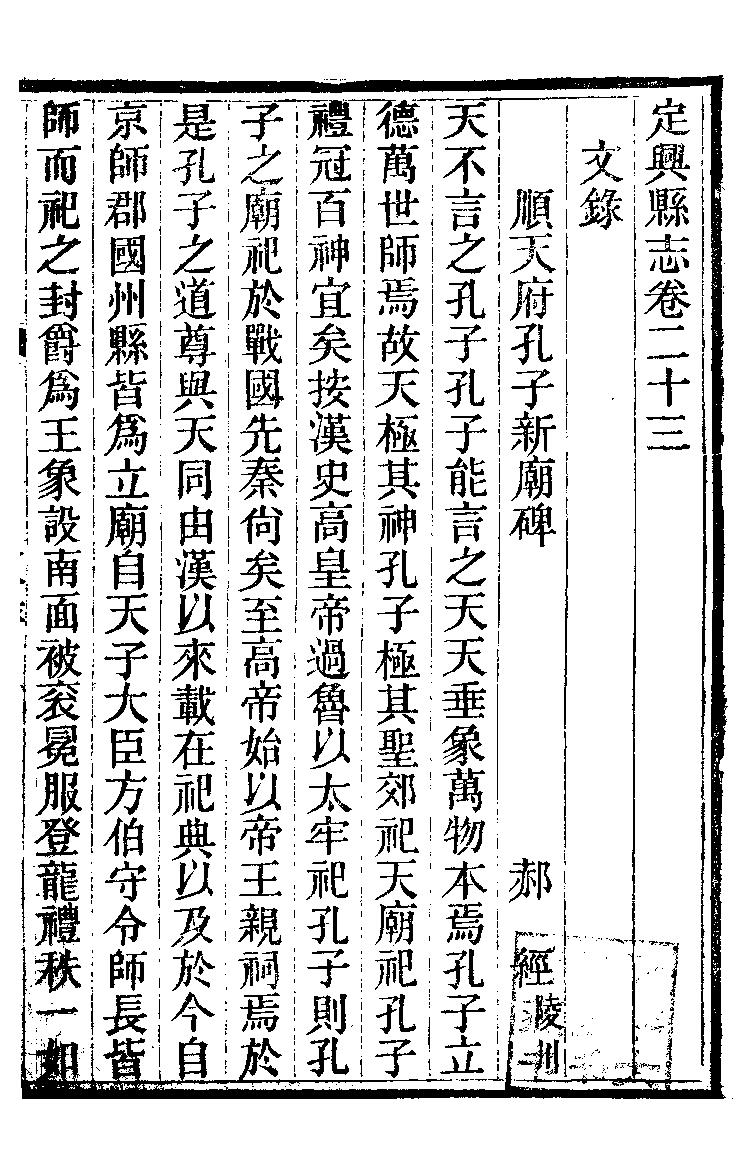 定興縣志卷二十三
文錄
順天府孔子新廟碑 郝經陵川
天不言之孔子孔子能言之天天垂象萬物本焉孔子立
德萬世師焉故天極其神孔子極其聖郊祀天廟祀孔子
禮冠百神宜矣按漢史高皇帝過魯以太牢祀孔子則孔
子之廟祀於戰國先秦尙矣至高帝始以帝王親祠焉於
是孔子之道尊與天同由漢以來載在祀典以及於今自
京師郡國州縣皆爲立廟自天子大臣方伯守令師長皆
師而祀之封爵爲王象設南面被衮冕服登龍禮秩一如